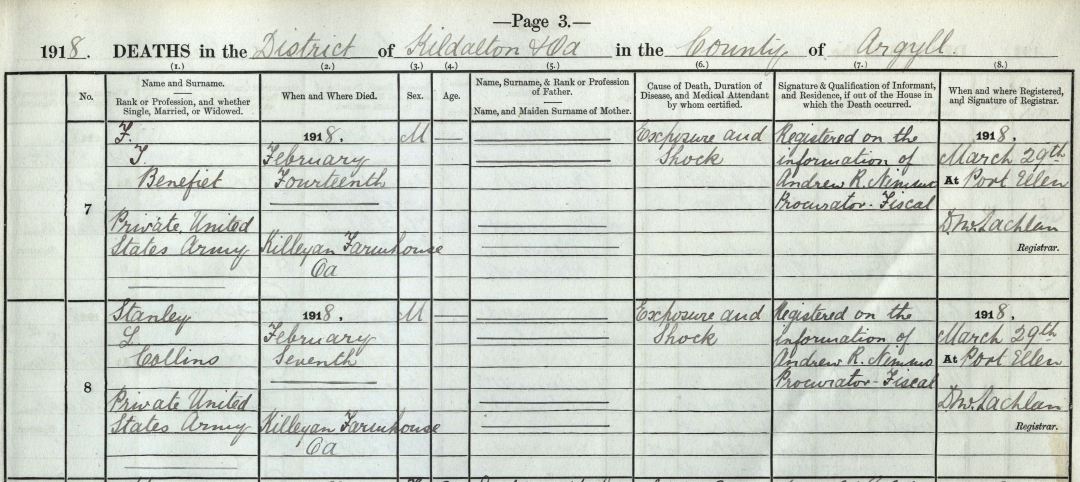 —Page 3.—
1918. DEATHS in the District of Kildalton & Oa in the County of Argyll
(1.) (2.) (3.) (4.) (5.) (6.) (7.) (8.)
No.
Name and Surname.
Rank or Profession, and whether
Single, Married, or Widowed.
When and Where Died.
Sex.
Age.
Name, Surname, & Rank or Profession
of Father.
Name, and Maiden Surname of Mother.
Cause of Death, Duration of
Disease, and Medical Attendant
by whom certified.
Signature & Qualification of Informant,
and Residence, if out of the House in
which the Death occurred.
When and where Registered,
and Signature of Registrar.
7
F.
T.
Benefiet
Private United
States Army
1918.
February
Fourteenth
Killeyan Farmhouse
Oa
M
Exposure and
Shock
Registered on the
information of
Andrew R. Nimmo
Procurator-Fiscal
1918.
March 29th
At Port Ellen
Registrar.
8
Stanley
L
Collins
Private United
States Army
1918.
February
Seventh
Killeyan Farmhouse
Oa
M
Exposure and
Shock
Registered on the
information of
Andrew R. Nimmo
Procurator-Fiscal
1918.
March 29th
At Port Ellen
Registrar.